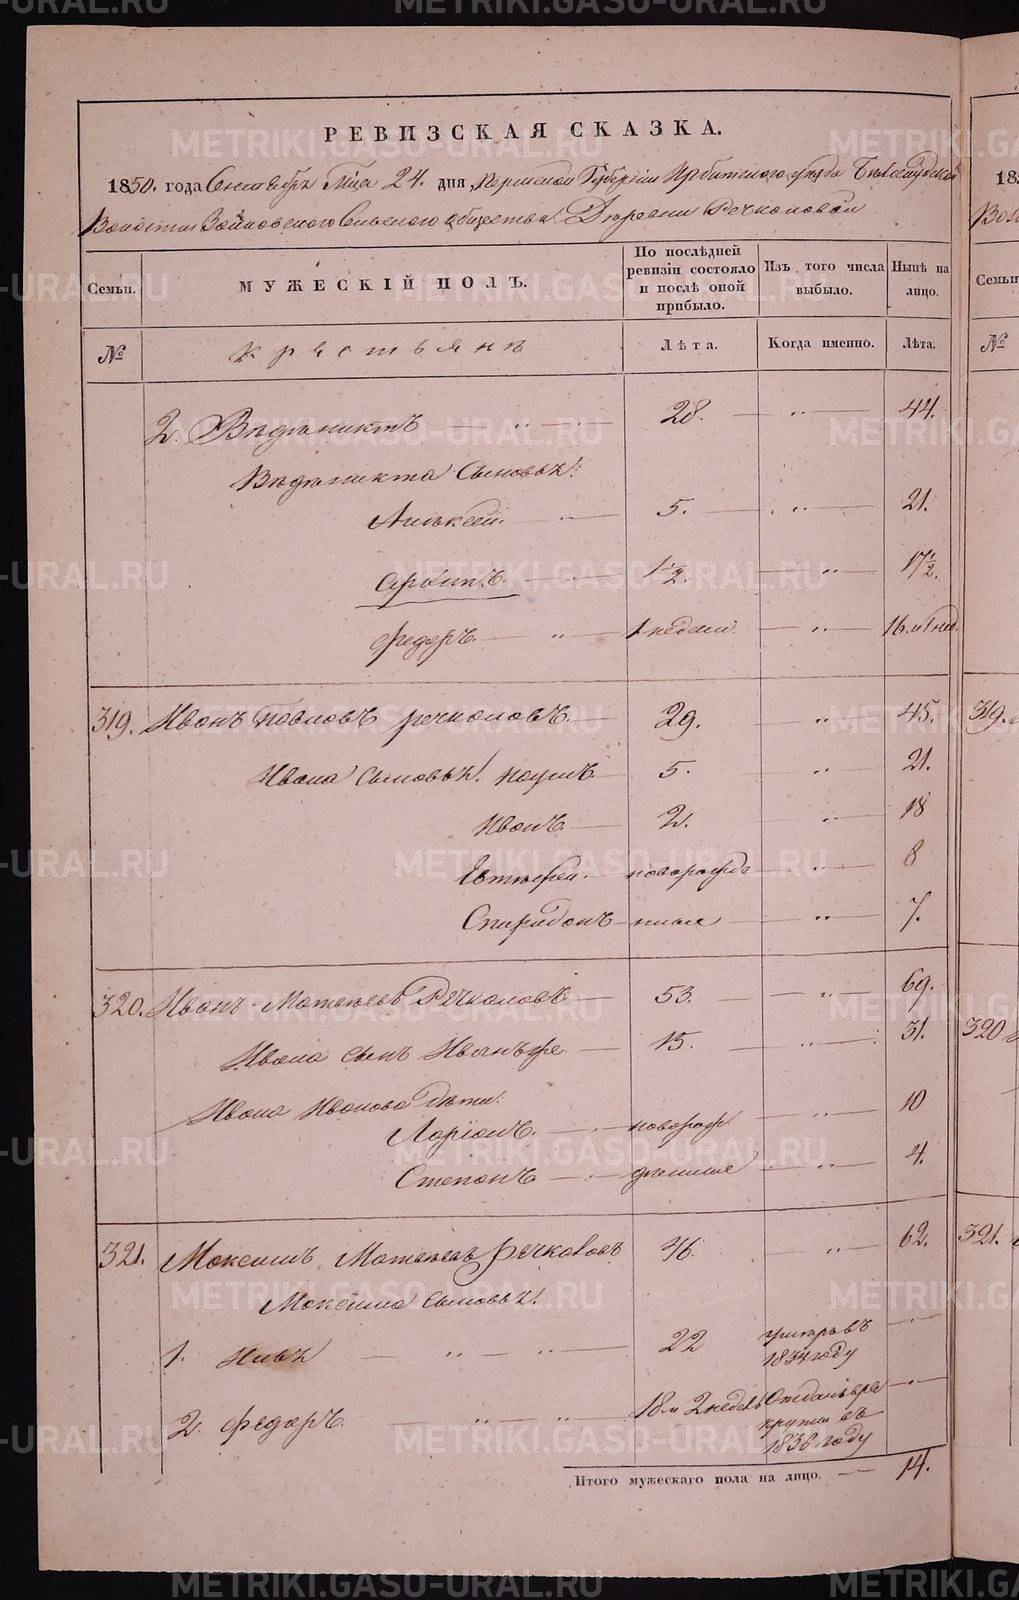 METRIKI.GASO-URAL.RU
РЕВИЗСКАЯ СКАЗКА.
1850. года Октября Мца 24. дня, Пермской Губерніи Ирбитского уезда
Волости Сельского общества Деревни Речкаловой
Семьи. МУЖЕСКІЙ ПОЛЪ. По послѣдней ревизіи состояло и послѣ оной прибыло. Изъ того числа выбыло. Нынѣ на лицо.
№ Крестьянѣ Лѣта. Когда именно. Лѣта.
2. Ведениктъ — „ — 28. — „ — 44.
Веденикта Сыновья:
Алексей. — „ — 5. — „ — 21.
— „ — 1 1/2. — „ — 17 1/2.
Федоръ. — „ — 1 недели — „ — 16. и 1 нед.
319. Иванъ Павловъ Речкаловъ — 29. „ 45. 319.
Ивана Сыновья: Наумъ — 5. „ 21.
Иванъ. — 2. „ 18
Евтефей. — новорожде — „ — 8
Спиридонъ — нные — „ — 7.
320. Иванъ Матвеевъ Речкаловъ — 53. — „ — 69.
Ивана сынъ Иванъ же — 15. — „ — 31. 320
Ивана Иванова дети:
Ларіонъ. — новорож — „ — 10
Степанъ — денные — „ — 4.
321. Максимъ Матвеевъ Речкаловъ 46. — „ — 62. 321.
Максима сыновья:
1. — „ — „ — 22 умеръ въ 1834 году — „ —
2. Федоръ. — „ — „ — 18 и 2 недель Отданъ въ рекруты въ 1836 году — „ —
Итого мужескаго пола на лицо. — 14.